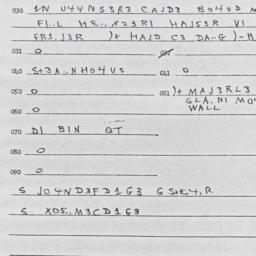 030 IN U44NS3R3 CAJD3 B04UD M
FI.L HE., X23RI HAJS3R VI
FR1.J3R )+ HAJD C3 DA..G )-H
031 0
040 S+3A..NH04US 041 0
050 0 051 )+ MAJ3RL3
GLA.NI MO
WALL
060 0
070 DI BIN QT
080 0
090 0
S J04ND3FD1G3 GS+E4.R
S X05..M3CD1G3